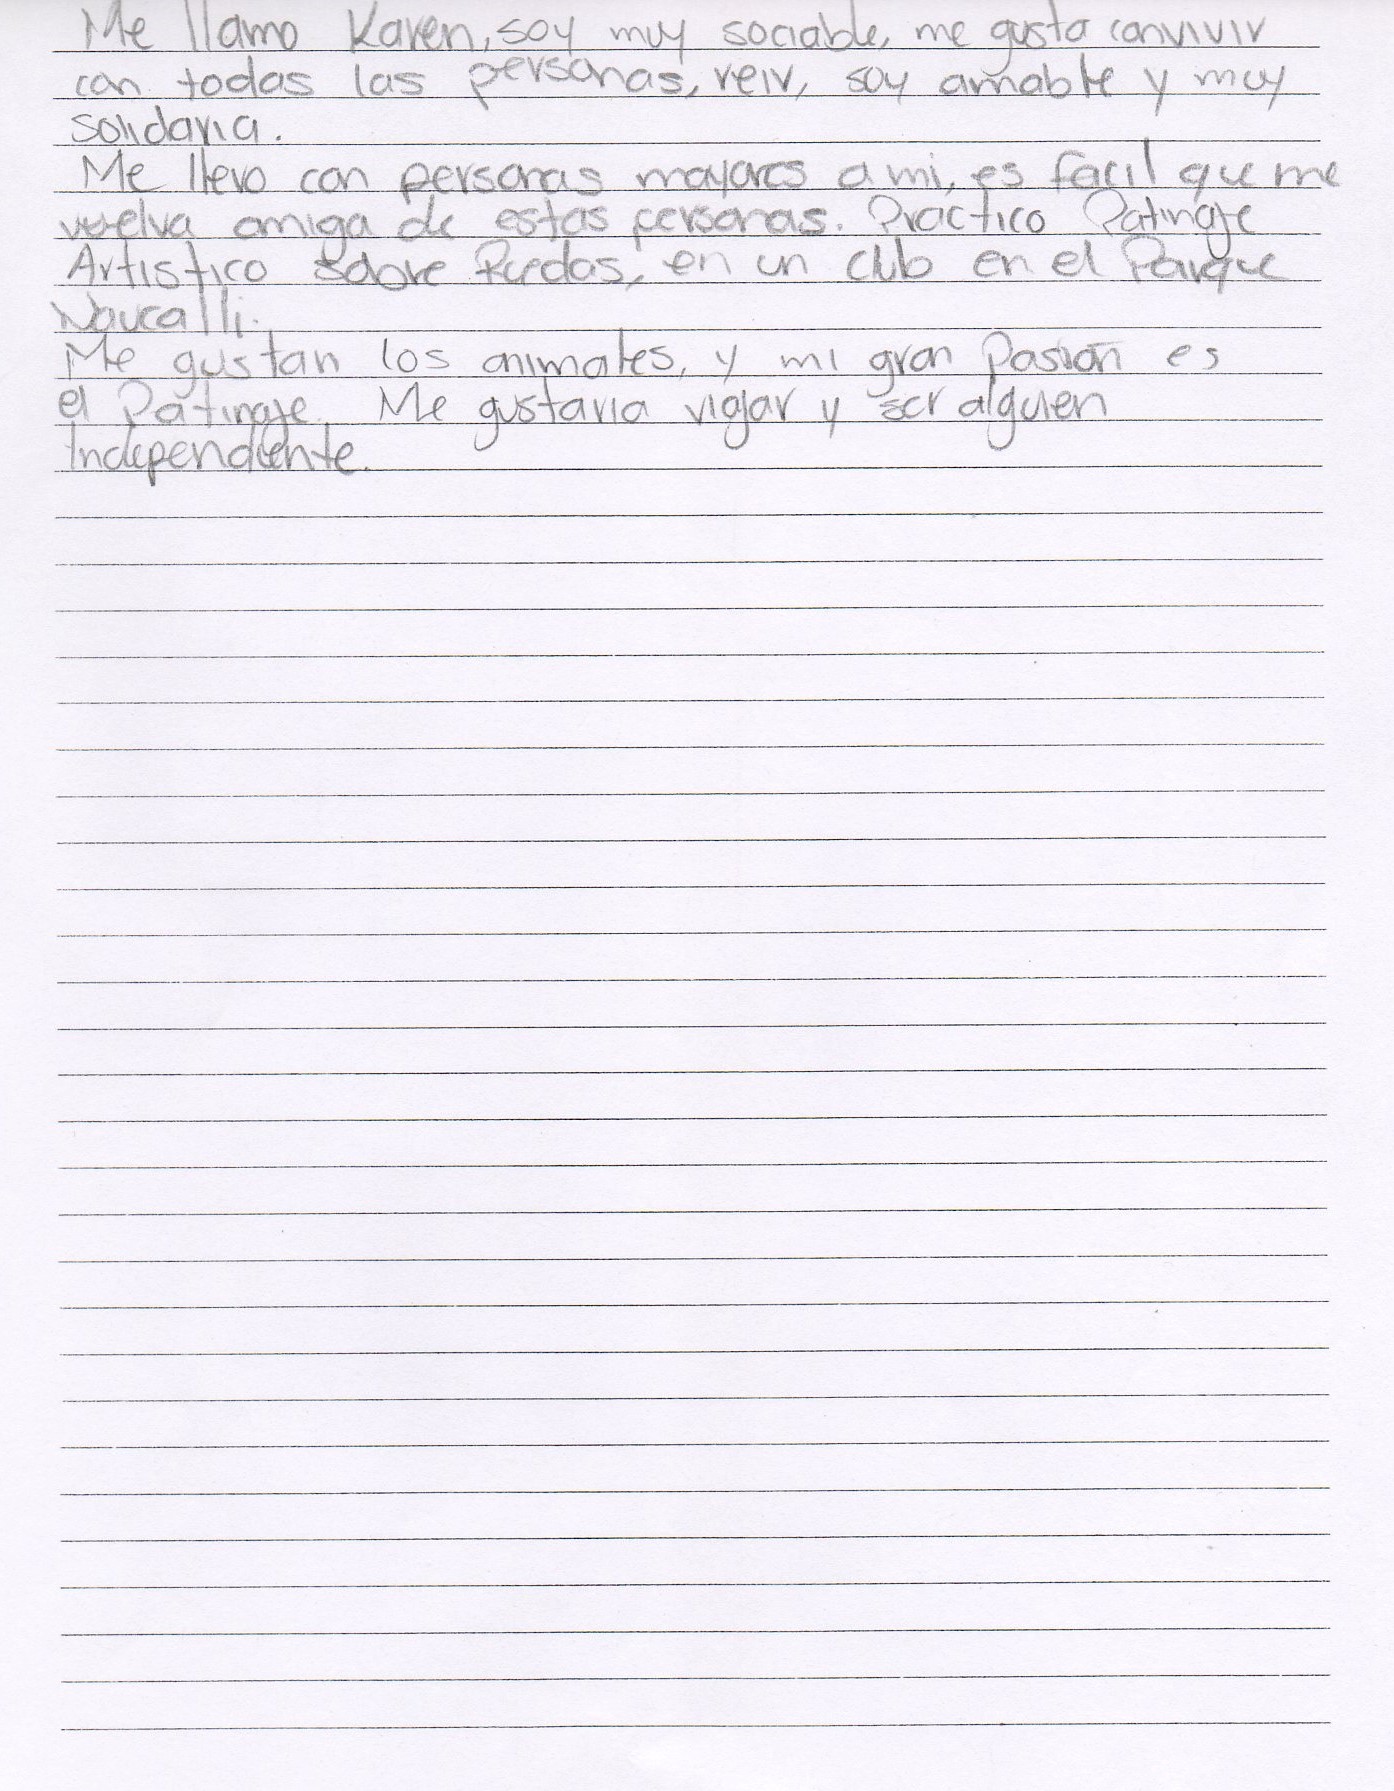 Me llamo Karen, soy muy sociable, me gusta convivir
con todas las personas, reir, soy amable y muy
solidaria.
Me llevo con personas mayores a mi, es fácil que me
vuelva amiga de estas personas. Practico Patinaje
Artistico sobre Ruedas, en un club en el Parque
Naucalli.
Me gustan los animales, y mi gran Pasión es
el Patinaje. Me gustaria viajar y ser alguien
Independiente.